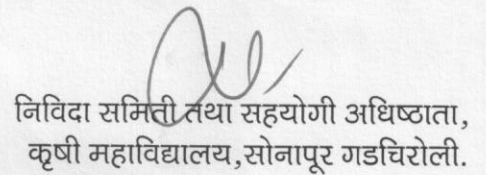 निविदा समिती तथा सहयोगी अधिष्ठाता,
कृषी महाविद्यालय,सोनापूर गडचिरोली.